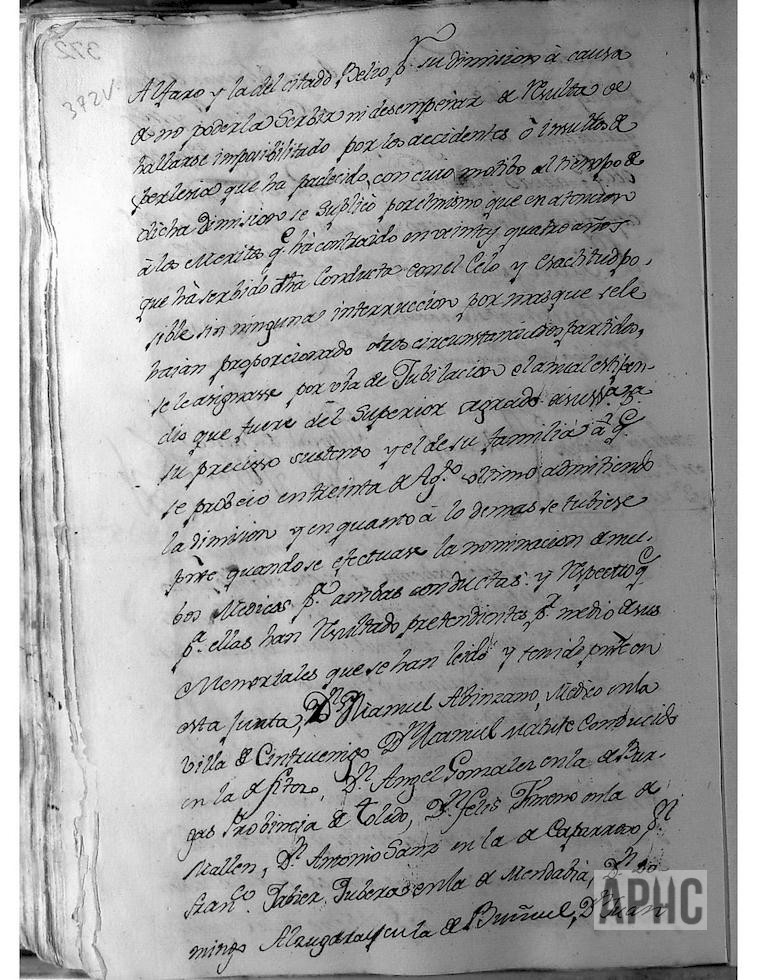 372
372V
Alfaro y la del citado Belio, pr. su dimision à causa
de no poderla Serbir ni desempeñar de resulta de
hallarse imposibilitado por los accidentes ò insultos de
perlesia que ha padecido, con cuio motibo al tiempo de
dicha dimision se suplicò por el mismo que en atencion
à los Meritos q.e hà contraido en veinte y quatro años
que hà serbido dha Conducta con el Celo y exactitud po-
sible sin ninguna interrucion por mas que sele
haian proporcionado otras circunstancias partidos,
se le asignase por via de Jubilacion el anual estipen-
dio que fuere del Superior agrado de
su precisso sustento y el de su familia à q.e
se probeiò en treinta de Ag.to ultimo admitiendo
la dimision y en quanto à lo demas se tubiese
pnte quando se efectuase la nominacion de nue-
bos Medicos p.a ambas conductas. y respecto q.e
p.a ellas han resultado pretendientes p.r medio de sus
Memoriales que se han leido y tenido pnte en
esta Junta, Dn Manuel Abinzano, Medico en la
Villa de Cintruenigo Dn Manuel Conducido
en la de fitero, Dn Angel Gonzalez en la de Bur-
gas Probincia de Toledo, Dn felis Ximeno en la de
Mallen, Dn Antonio Sanz en la de Caparroso Dn
fran.co Jabier Tubera en la de Mendabia, Dn Do-
mingo en la de Buñuel, Dn Juan
APHC